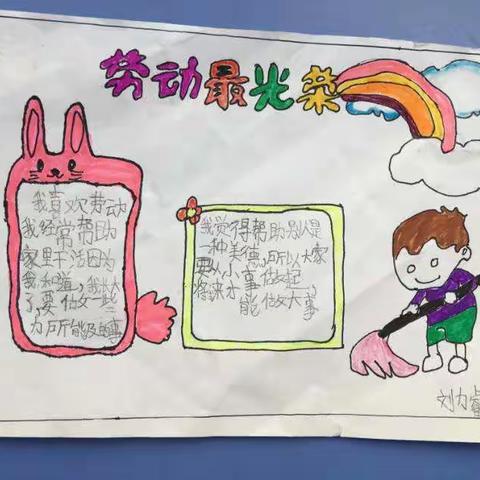 劳动最光荣
我喜欢劳动
我经常帮助
家里干活因为
我知道,我长大
了,要做一些
力所能及的事
我觉得帮助别人是
一种美德,所以大家
要从小事做起
将来才能做大事
刘力睿